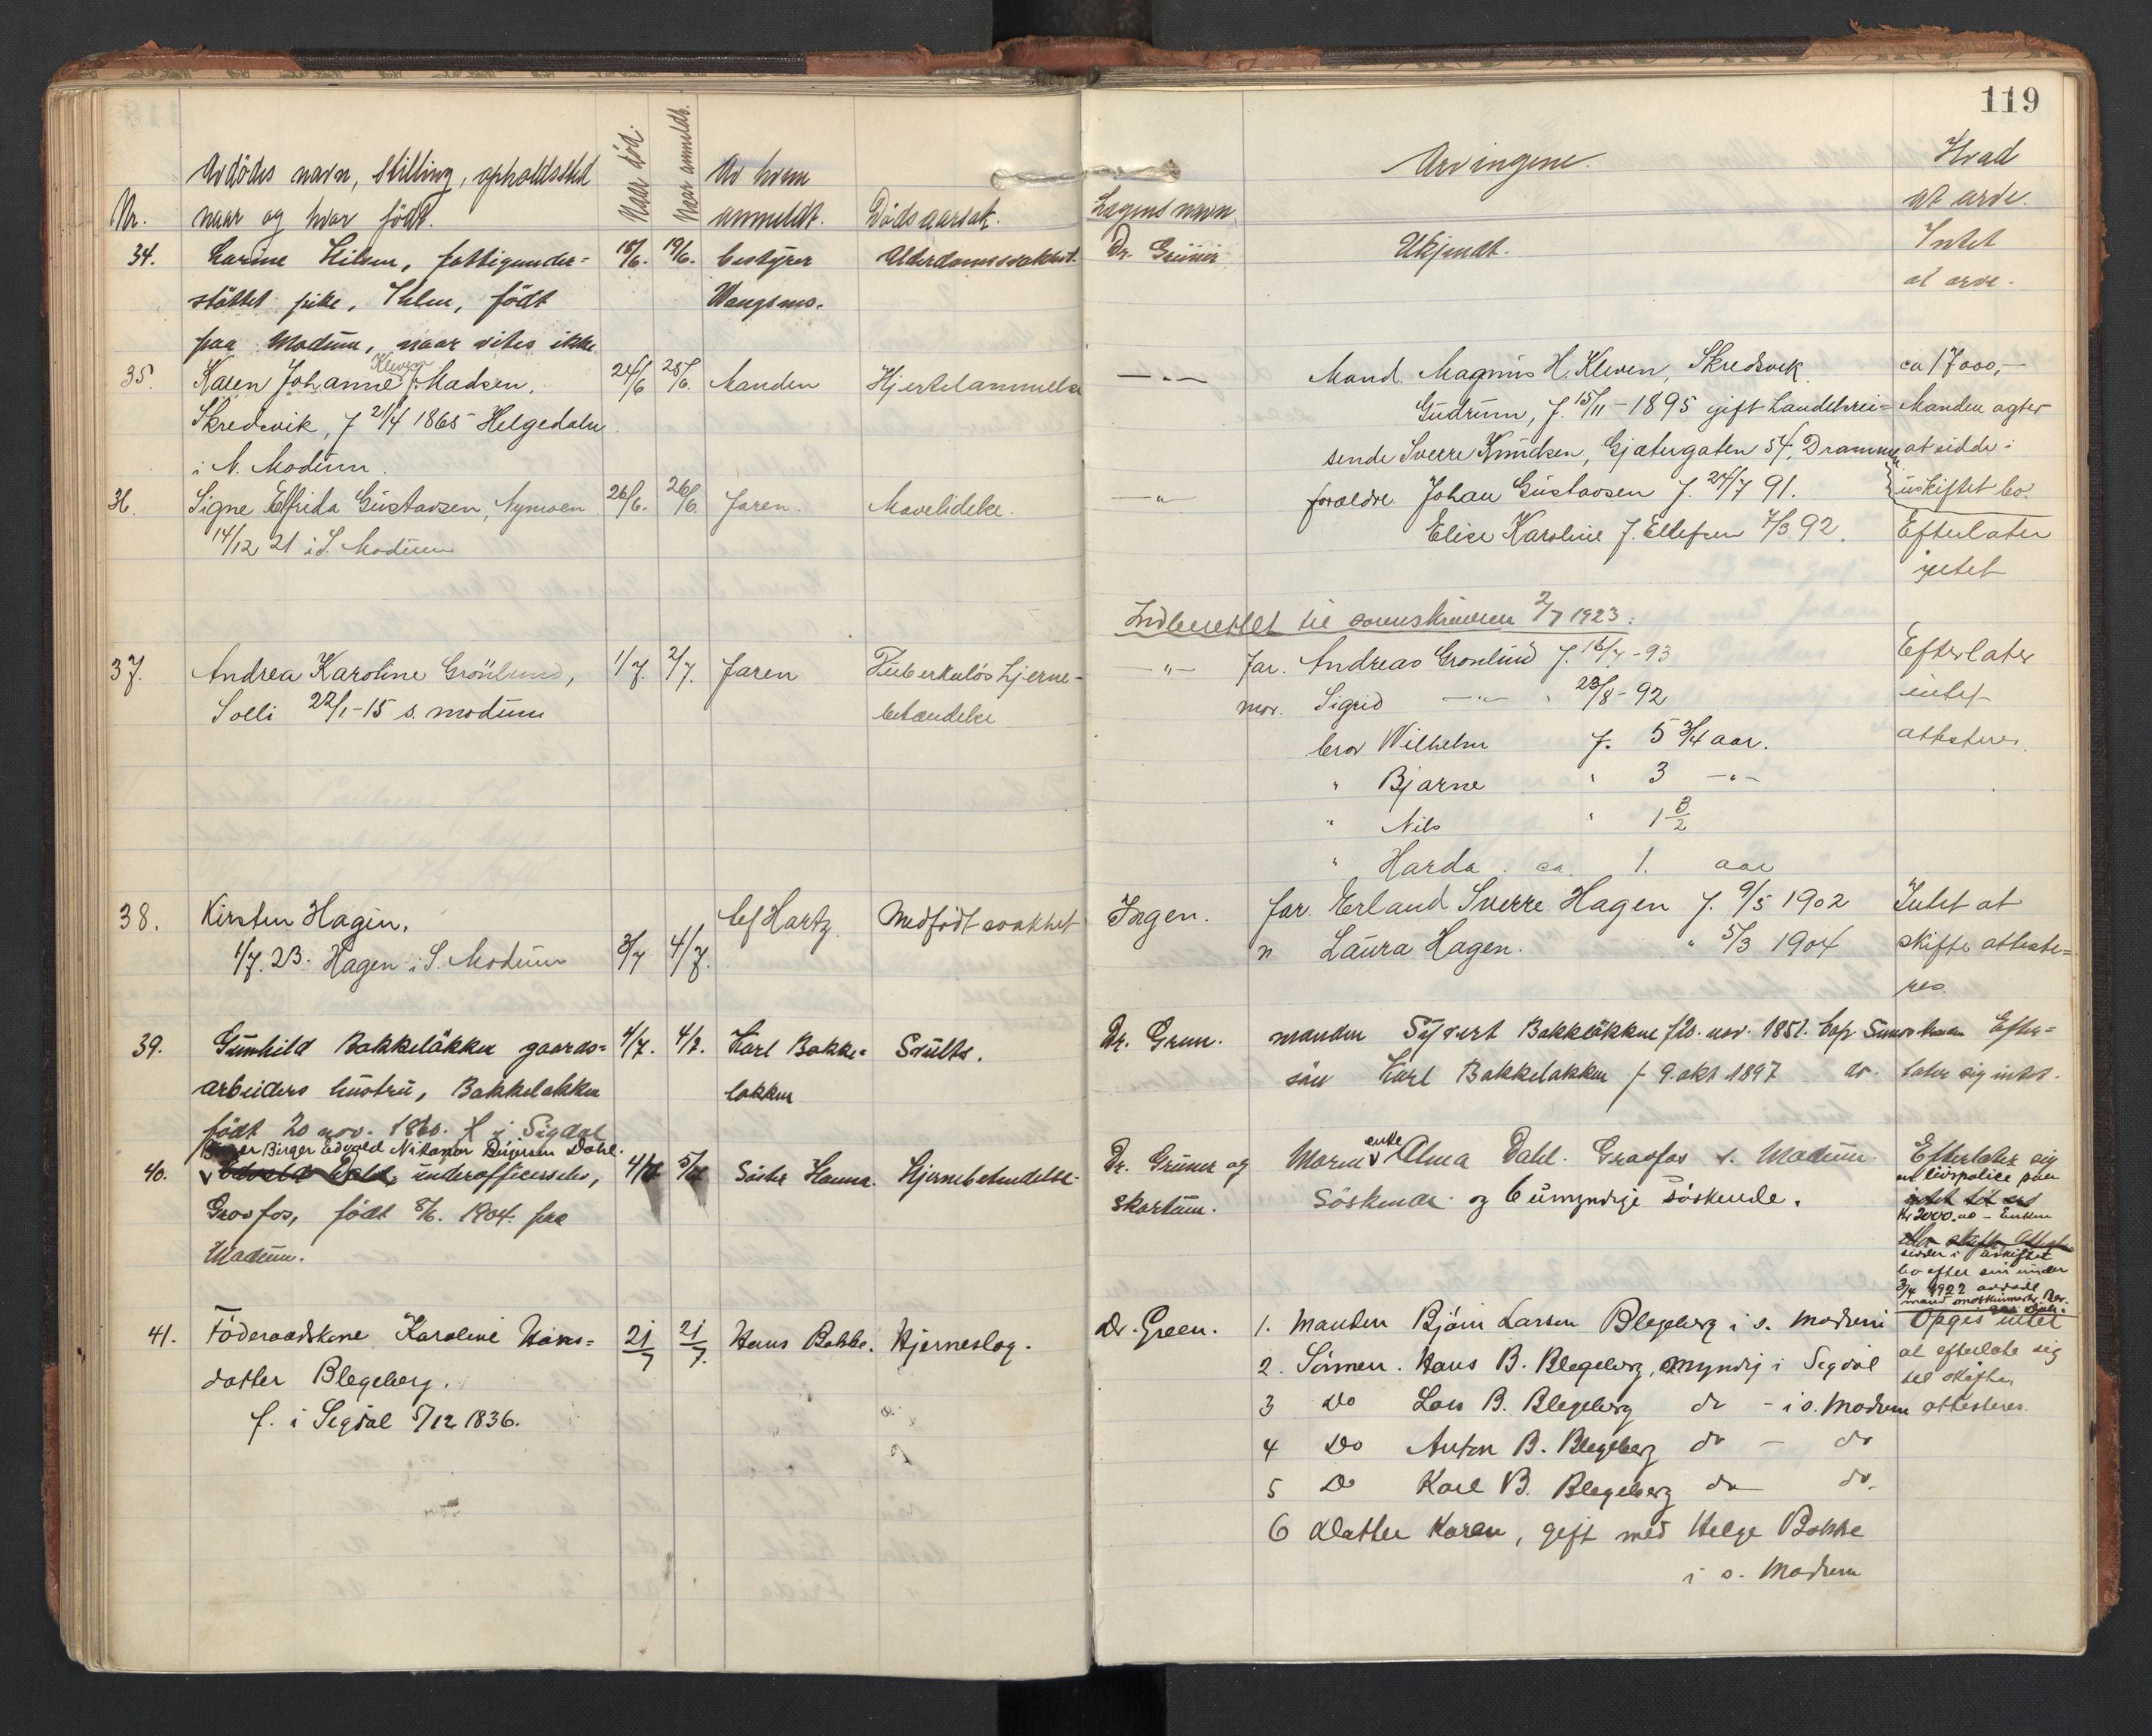 119
Avdödes navn, stilling, opholdssted
naar og hvor födt.
Nr.
Naar död.
Naar anmeldt.
Av hvem
anmeldt.
Dödsaarsak.
Lægens navn
Arvingene.
Hvad
at arve.
34. Karine Hilsen, fattigunder=
stöttet pike, født
paa Modum, naar vites ikke
18/6. 19/6. bestyrer
Wangsmo.
Alderdomssvakhet.
Dr. Grüner
Ukjendt.
Intet
at arve.
35. Karen Johanne Kleven f. Madsen,
Skredsvik, f 21/4 1865 Helgedalen
i N. Modum.
24/6 25/6. Manden Hjertelammelse
—„— Mand. Magnus H. Kleven, Skredsvik.
Gudrun, f. 15/11-1895 gift handelsrei=
sende Sverre Knudsen, Gjætergaten 54, Drammen
ca 17000,-
Manden agter
at sidde i
uskiftet bo.
36. Signe Elfrida Gustavsen, Nymoen
14/12 21 i S. Modum
26/6. 26/6. Faren. Mavelidelse.
—„— forældre Johan Gustavsen f. 24/7 91.
Elise Karoline f. Ellefsen 7/3 92.
Efterlater
intet
Indberettet til sorenskriveren 2/7 1923:
37. Andrea Karoline Grönlund,
Solli 22/1-15 s. modum
1/7. 2/7. Faren Tuberkuløs hjerne-
betændelse
—„— Far. Andreas Gronlund f. 16/7-93
mor. Sigrid —„— „ 23/8-92
bror Wilhelm f. 5 3/4 aar.
„ Bjarne „ 3 —„—
„ Nils „ 1 3/2
„ Harda ca. 1. aar
Efterlater
intet
attesteres.
38. Kirsten Hagen.
1/7. 23. Hagen i S. Modum
3/7 4/7. bef Hartz. Medfödt svakhet
Ingen. far. Erland Sverre Hagen f. 9/5 1902
Laura Hagen. „ 5/3 1904
Intet at
skifte atteste=
res.
39. Gunhild Bakkeløkken gaards=
arbeiders hustru, Bakkeløkken
født 20 nov. 1860. i Sigdal
4/7. 4/7. Karl Bakke=
løkken
Svulst.
Dr. Gren. manden Syvert Bakkeløkken f 20. nov. 1851.
sön Karl Bakkeløkken f 9. okt 1897 do.
Efter=
later sig intet.
40. Birger Edvald Nikanor Dahl.
underofficerselev,
Gravfos, født 8/6. 1904. paa
Modum.
4/7 5/7 Söster Hanna. Hjernebetændelse.
Dr. Grüner og
Skartum.
Moren enke Alma Dahl. Gravfos s. Modum.
Söskende og 6 umyndige söskende.
Efterlater sig
en livspolice paa
kr 2000.00 - Enken
sidder i uskiftet
bo efter sin under
3/4 1922 avdøde
41. Föderaadskone Karoline Hans=
datter Blegeberg.
f. i Sigdal 5/12 1836.
21/7 21/7. Hans Bakke. Hjerneslag.
Dr. Green. 1. Manden Björn Larsen Blegeberg i s. Modum
2. Sönnen. Hans B. Blegeberg, myndig i Sigdal
3 Do Lars B. Blegeberg do - i s. Modum
4 Do Anton B. Blegeberg do — do
5 Do Karl B. Blegeberg do — do.
6 Datter Karen, gift med Helge Bakke
i s. Modum
Opgis intet
at efterlate sig
til skifte.
attesteres.